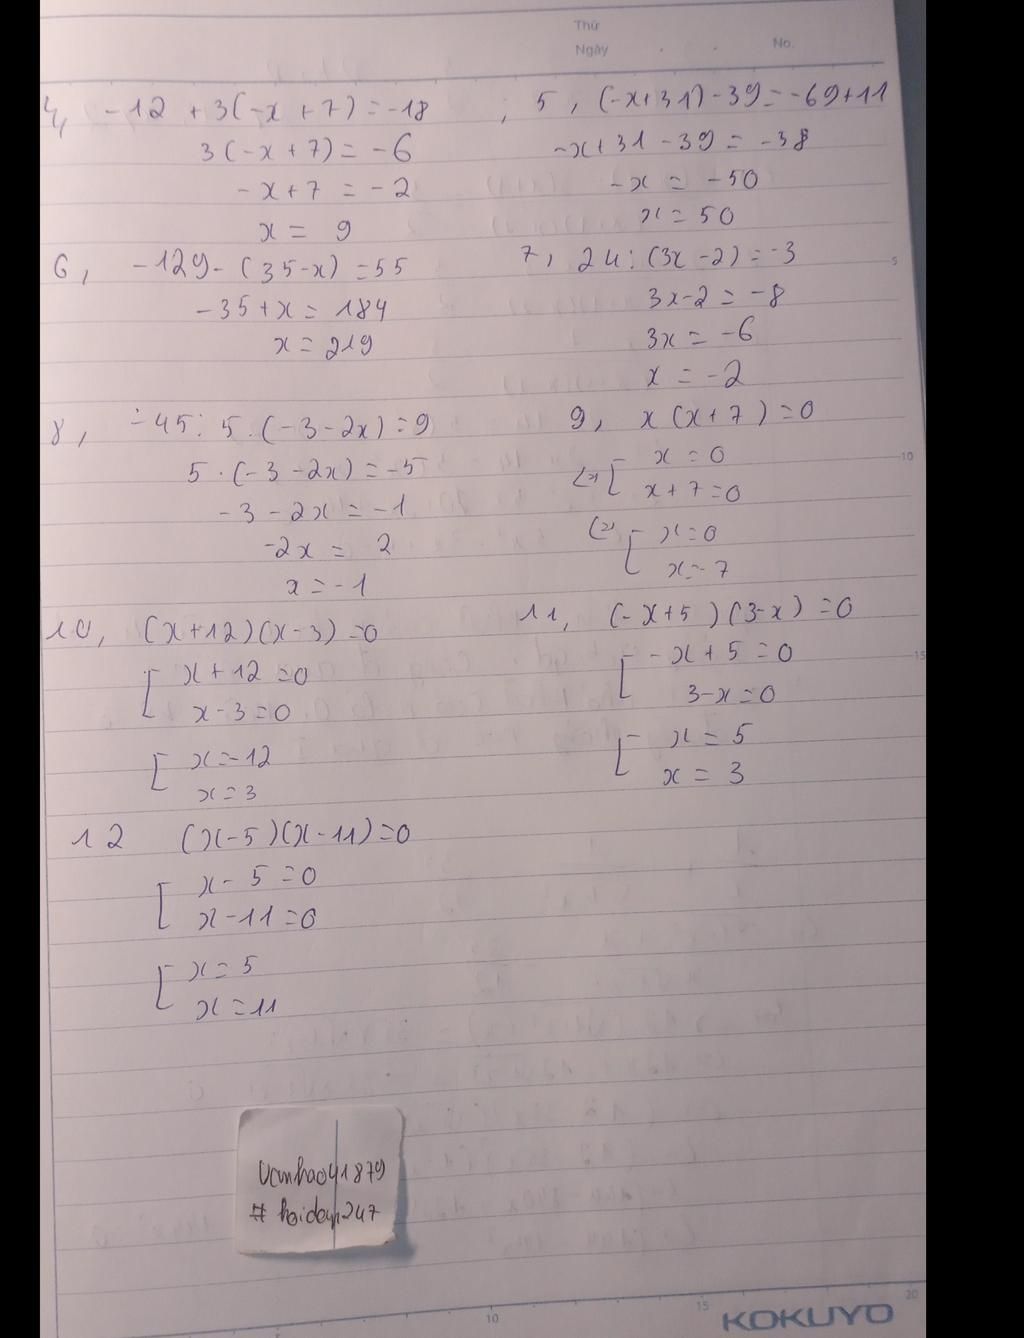 Thứ
Ngày . . No.
4, -12 + 3(-x + 7) = -18
3(-x + 7) = -6
-x + 7 = -2
x = 9
; 5, (-x+31) - 39 = -69+11
-x+31 - 39 = -38
-x = -50
x = 50
6, -129 - (35-x) = 55
-35 + x = 184
x = 219
7, 24 : (3x - 2) = -3
3x - 2 = -8
3x = -6
x = -2
8, -45 : 5 . (-3 - 2x) = 9
5 . (-3 - 2x) = -5
-3 - 2x = -1
-2x = 2
x = -1
9, x (x + 7) = 0
[ x = 0
x + 7 = 0
[ x = 0
x = -7
10, (x+12)(x-3) = 0
[ x + 12 = 0
x - 3 = 0
[ x = -12
x = 3
11, (-x+5)(3-x) = 0
[ -x + 5 = 0
3-x = 0
[ x = 5
x = 3
12 (x-5)(x-11) = 0
[ x - 5 = 0
x - 11 = 0
[ x = 5
x = 11
5
10
15
Vanhao41879
# hoidap247
10 15 20
KOKUYO